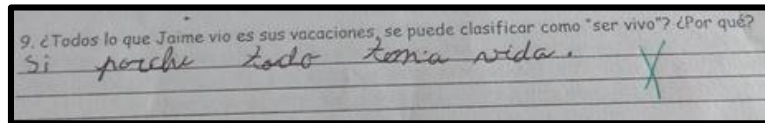 9. ¿Todos lo que Jaime vio es sus vacaciones, se puede clasificar como "ser vivo"? ¿Por qué?
Si porche todo tenia vida.